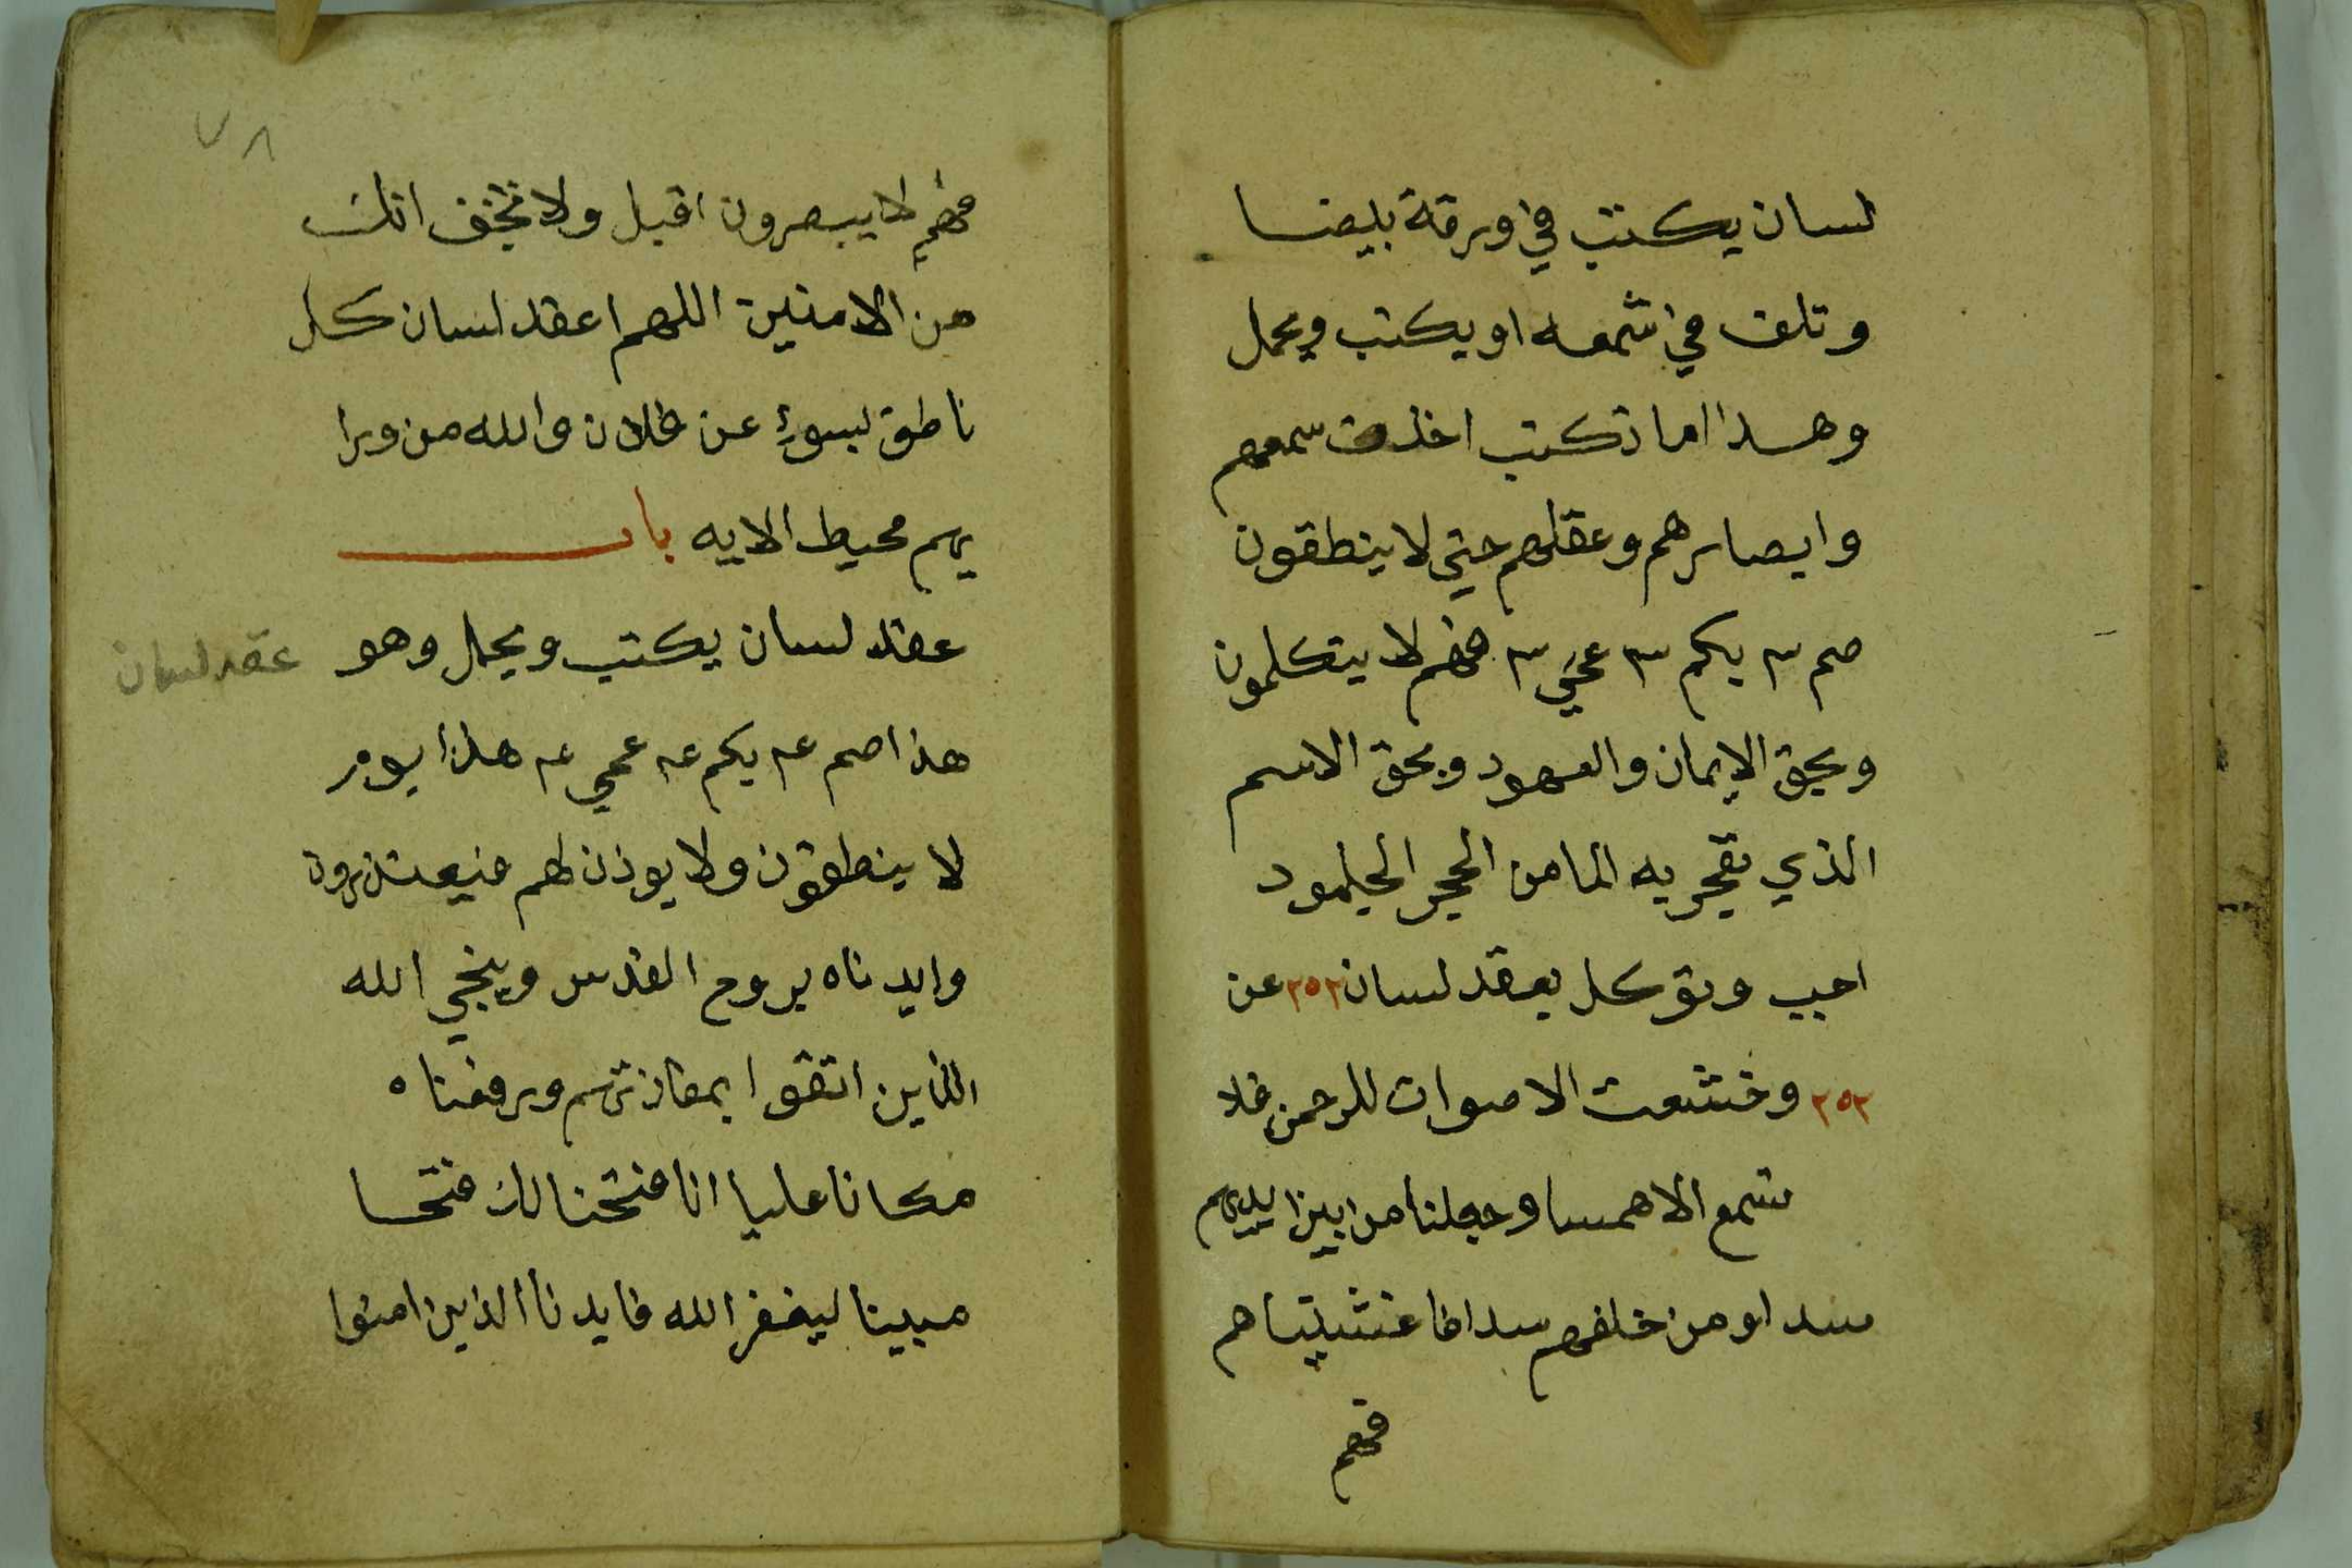 لسان يكتب في ورقة بيضا
وتلف في شمعه او يكتب ويحمل
وهذا اما تكتب اخذت سمعهم
وابصارهم وعقلهم حتي لا ينطقون
صم ٣ بكم ٣ عمي ٣ فهم لا يتكلمون
وبحق الايمان والعهود وبحق الاسم
الذي تفجر به الما من الحجر الجلمود
اجب وتوكل بعقد لسان ٢٥٢ عن
٢٥٢ وخشعت الاصوات للرحمن فلا
تسمع الا همسا وجعلنا من بين ايديهم
سدا ومن خلفهم سدا فاغشيناهم
فهم
٧٨
فهم لا يبصرون اقبل ولا تخف انك
من الامنين اللهم اعقد لسان كل
ناطق بسوء عن فلان والله من ورا
يهم محيط الايه باب
عقد لسان يكتب ويحمل وهو
عقد لسان
هذا صم عم بكم عم عمي عم هذا يوم
لا ينطقون ولا يوذن لهم فيعتذرون
وايدناه بروح القدس وينجي الله
الذين اتقوا بمفازتهم ورفعناه
مكانا عليا انا فتحنا لك فتحا
مبينا ليغفر الله فايدنا الذين امنوا